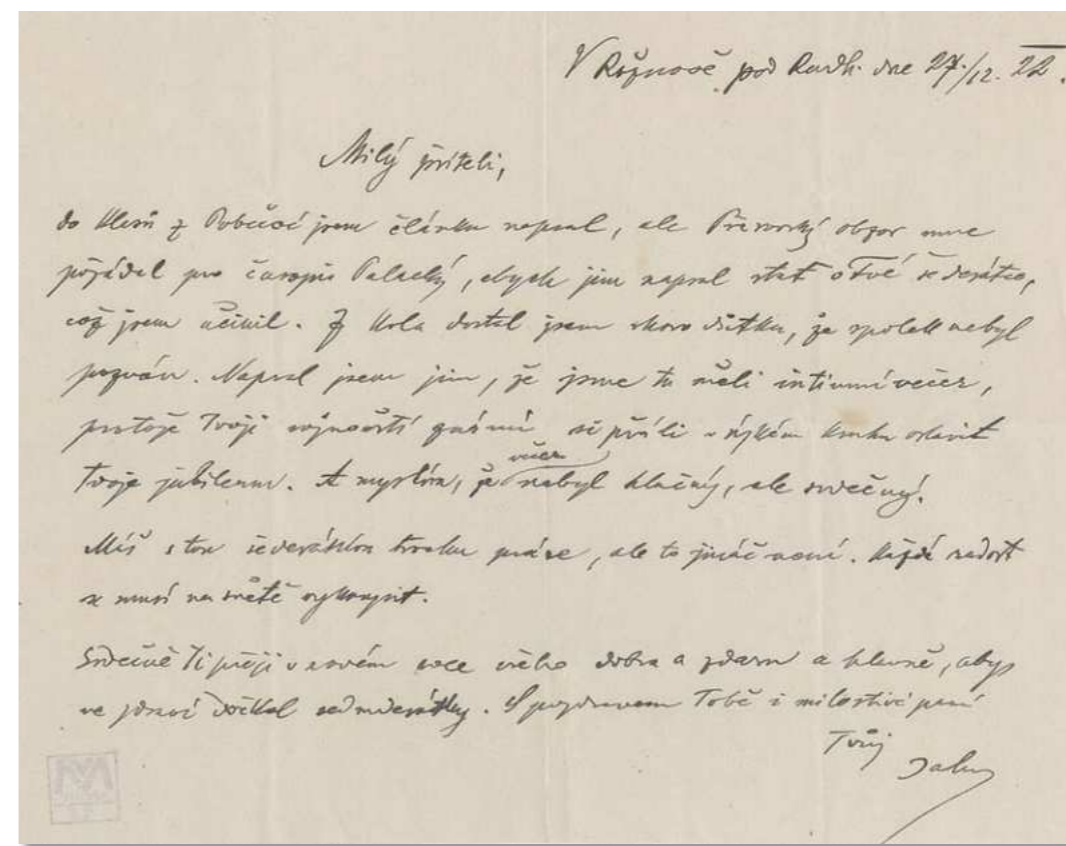 V Rožnově pod Radh. dne 27./12. 22.
Milý příteli,
do Hlasů z Pobečví jsem článku nepsal, ale Přerovský obzor mne
požádal pro časopis Palacký, abych jim napsal stať o Tvé šedesátce,
což jsem učinil. Z Kola dostal jsem skoro výtku, že spolek nebyl
pozván. Napsal jsem jim, že jsme tu měli intimní večer,
protože Tvoji známí si přáli v úzkém kruhu oslavit
Tvoje jubileum. A myslím, že večer nebyl hlučný, ale srdečný.
Máš s tou šedesátkou trochu práce, ale to jináč není. Každá radost
se musí na světě vykoupit.
Srdečně Ti přeji v novém roce všeho dobra a zdaru a hlavně, abys
ve zdraví dočkal sedmdesátky. S pozdravem Tobě i milostivé paní
Tvůj